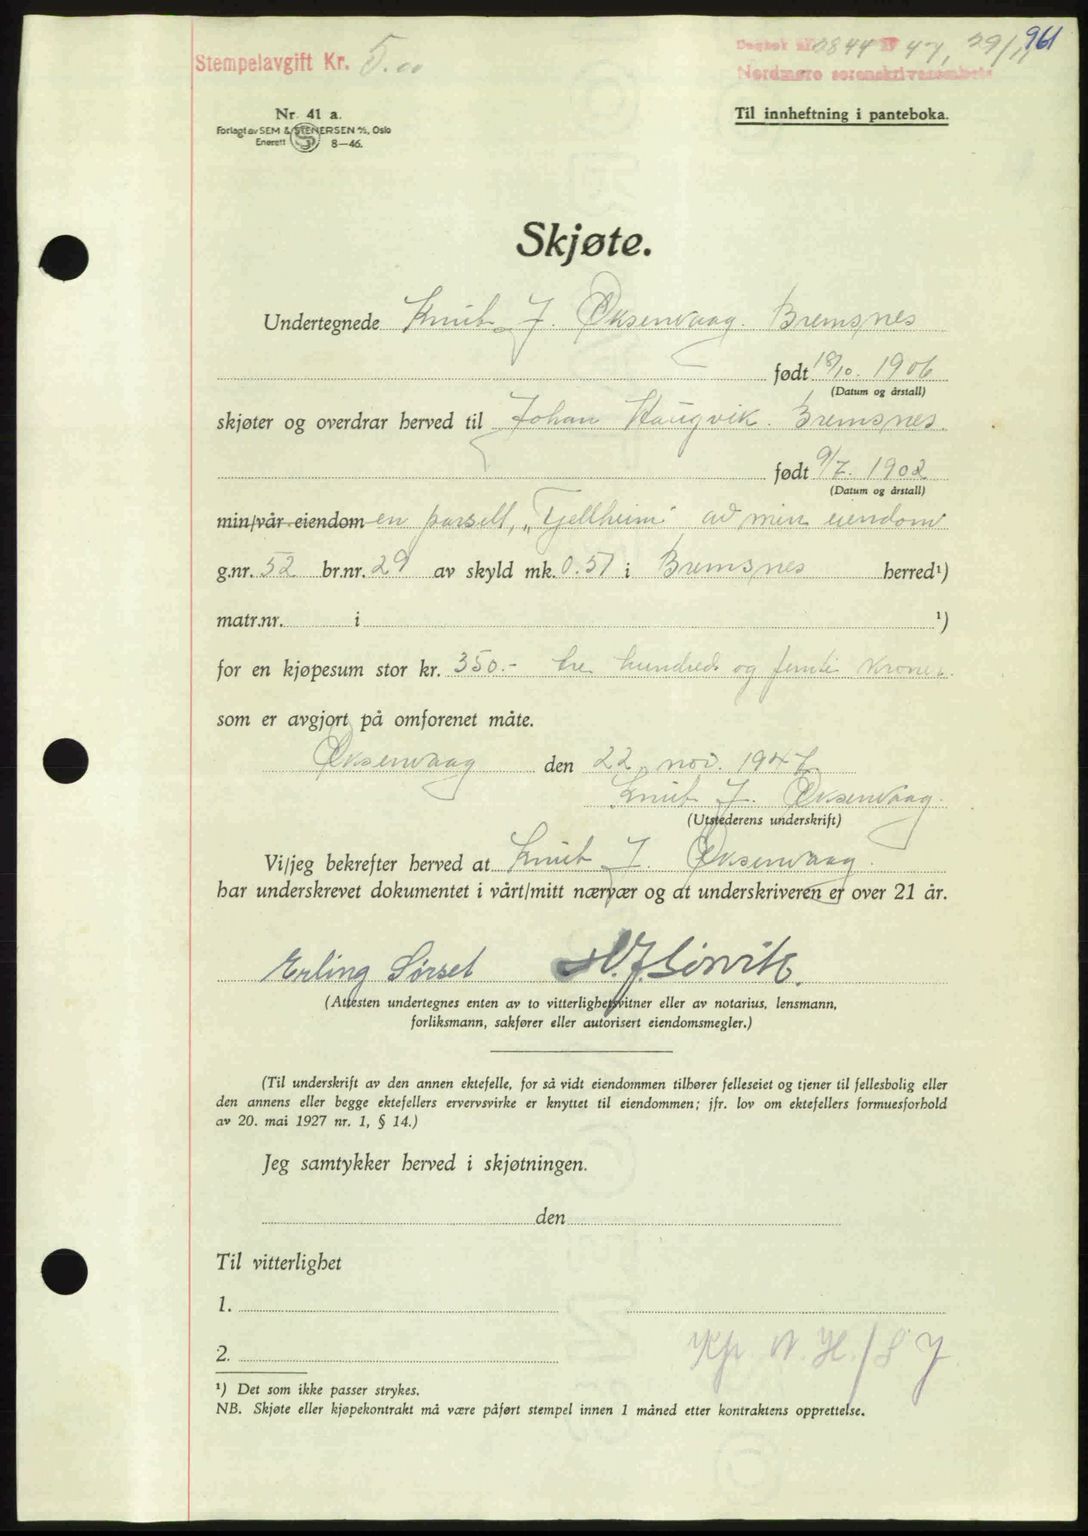 961
Stempelavgift Kr. 5.00
Dagbok nr. 2844 47, 29/11
Nordmøre sorenskriverembete
Nr. 41 a.
Forlagt av SEM & STENERSEN A/S, Oslo
Enerett 8—46.
Til innheftning i panteboka.
Skjøte.
Undertegnede Knut J. Øksenvaag. Bremsnes
født 18/10. 1906
(Datum og årstall)
skjøter og overdrar herved til Johan Haugvik. Bremsnes.
født 9/7. 1902
(Datum og årstall)
min/vår eiendom en parsell, „Fjellheim" av min eiendom
g.nr. 52 br.nr. 29 av skyld mk. 0.57 i Bremsnes herred¹)
matr.nr. i ¹)
for en kjøpesum stor kr. 350.- tre hundred og femti kroner.
som er avgjort på omforenet måte.
Øksenvaag den 22. nov. 1947
Knut J. Øksenvaag.
(Utstederens underskrift)
Vi/jeg bekrefter herved at Knut J. Øksenvaag.
har underskrevet dokumentet i vårt/mitt nærvær og at underskriveren er over 21 år.
Erling Sørset
(Attesten undertegnes enten av to vitterlighetsvitner eller av notarius, lensmann,
forliksmann, sakfører eller autorisert eiendomsmegler.)
(Til underskrift av den annen ektefelle, for så vidt eiendommen tilhører felleseiet og tjener til fellesbolig eller
den annens eller begge ektefellers ervervsvirke er knyttet til eiendommen; jfr. lov om ektefellers formuesforhold
av 20. mai 1927 nr. 1, § 14.)
Jeg samtykker herved i skjøtningen.
den
Til vitterlighet
1.
2.
¹) Det som ikke passer strykes.
NB. Skjøte eller kjøpekontrakt må være påført stempel innen 1 måned etter kontraktens opprettelse.